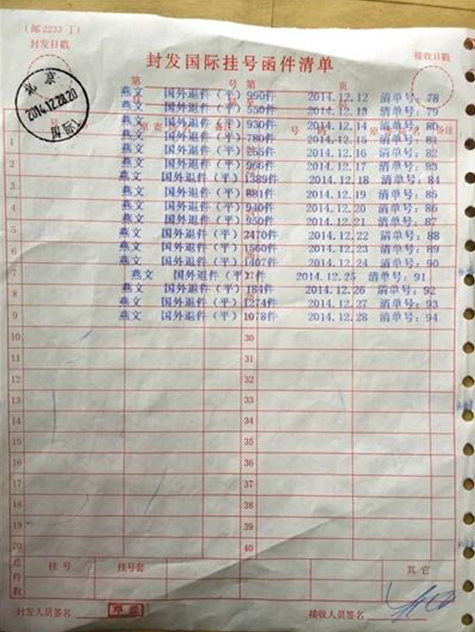 (邮2233丁)
封发日戳
接收日戳
封发国际挂号函件清单
第 号第 页
北京
2014.12.28.20
国际
燕文 国外退件(平)990件 2014.12.12 清单号:78
燕文 国外退件(平)550件 2014.12.13 清单号:79
燕文 国外退件(平)930件 2014.12.14 清单号:80
燕文 国外退件(平)780件 2014.12.15 清单号:81
燕文 国外退件(平)266件 2014.12.16 清单号:82
燕文 国外退件(平)966件 2014.12.17 清单号:83
燕文 国外退件(平)1389件 2014.12.18 清单号:84
燕文 国外退件(平)881件 2014.12.19 清单号:85
燕文 国外退件(平)940件 2014.12.20 清单号:86
燕文 国外退件(平)950件 2014.12.21 清单号:87
燕文 国外退件(平)2470件 2014.12.22 清单号:88
燕文 国外退件(平)1560件 2014.12.23 清单号:89
燕文 国外退件(平)1407件 2014.12.24 清单号:90
燕文 国外退件(平)件 2014.12.25 清单号:91
燕文 国外退件(平)184件 2014.12.26 清单号:92
燕文 国外退件(平)1274件 2014.12.27 清单号:93
燕文 国外退件(平)1078件 2014.12.28 清单号:94
号码 原寄局名 备注
1
2
3
4
5
6
7
8
9
10 30
11 31
12 32
13 33
14 34
15 35
16 36
17 37
18 38
19 39
20 40
总件数 挂号 挂号套 其它
封发人员签名 接收人员签名